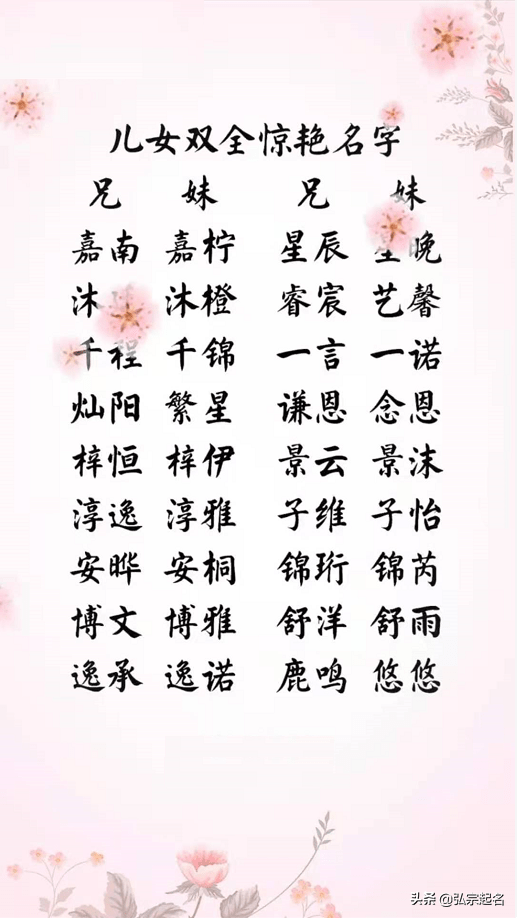 儿女双全惊艳名字
兄 妹 兄 妹
嘉南 嘉柠 星辰 星晚
沐 沐橙 睿宸 艺馨
千程 千锦 一言 一诺
灿阳 繁星 谦恩 念恩
梓恒 梓伊 景云 景沫
淳逸 淳雅 子维 子怡
安晔 安桐 锦珩 锦芮
博文 博雅 舒洋 舒雨
逸承 逸诺 鹿鸣 悠悠
头条 @弘宗起名